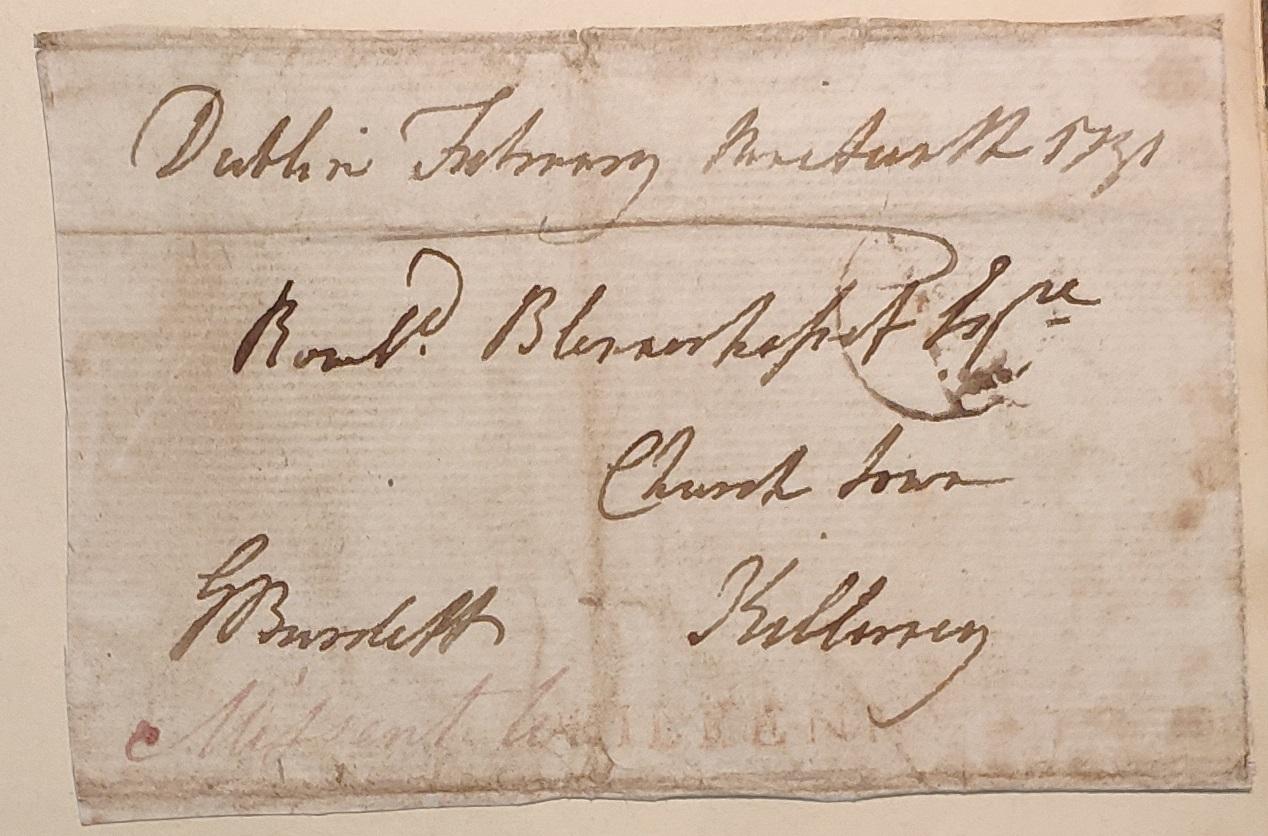 Dublin February Nineteenth 1791
Rowld. Blennerhasset Esqre
Church town
GBurdett
Killarney
Missent to